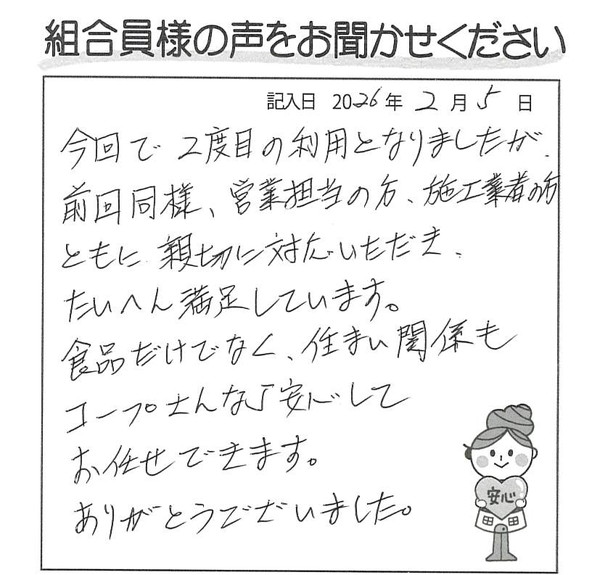 組合員様の声をお聞かせください
記入日 2026年 2月 5日
今回で 2度目の利用となりましたが、
前回同様、営業担当の方、施工業者の方
ともに 親切に対応いただき、
たいへん満足しています。
食品だけでなく、住まい関係も
コープさんなら安心して
お任せできます。
ありがとうございました。
安心